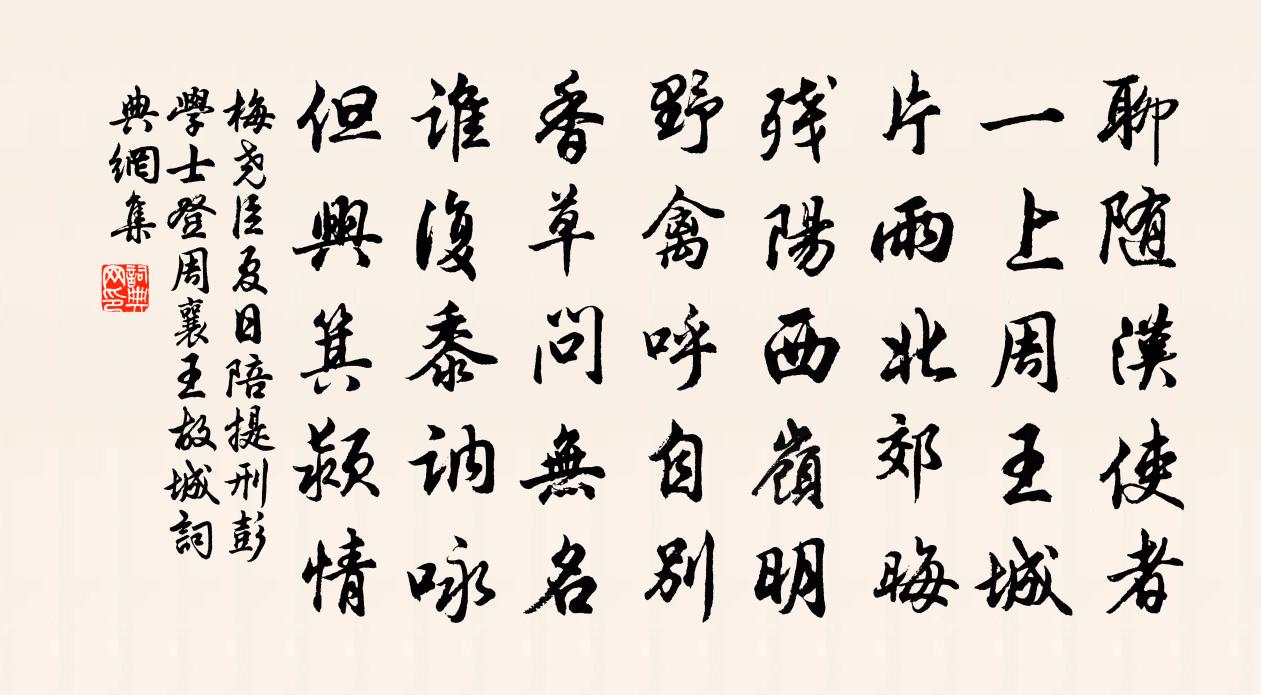 聊随漢使者
一上周王城
片雨北郊晦
残陽西嶺明
野禽呼自別
香草問無名
誰復黍詶咏
但興箕颍情
梅尧臣夏日陪提刑彭
學士登周襄王故城詞
典網集
詞典
网印